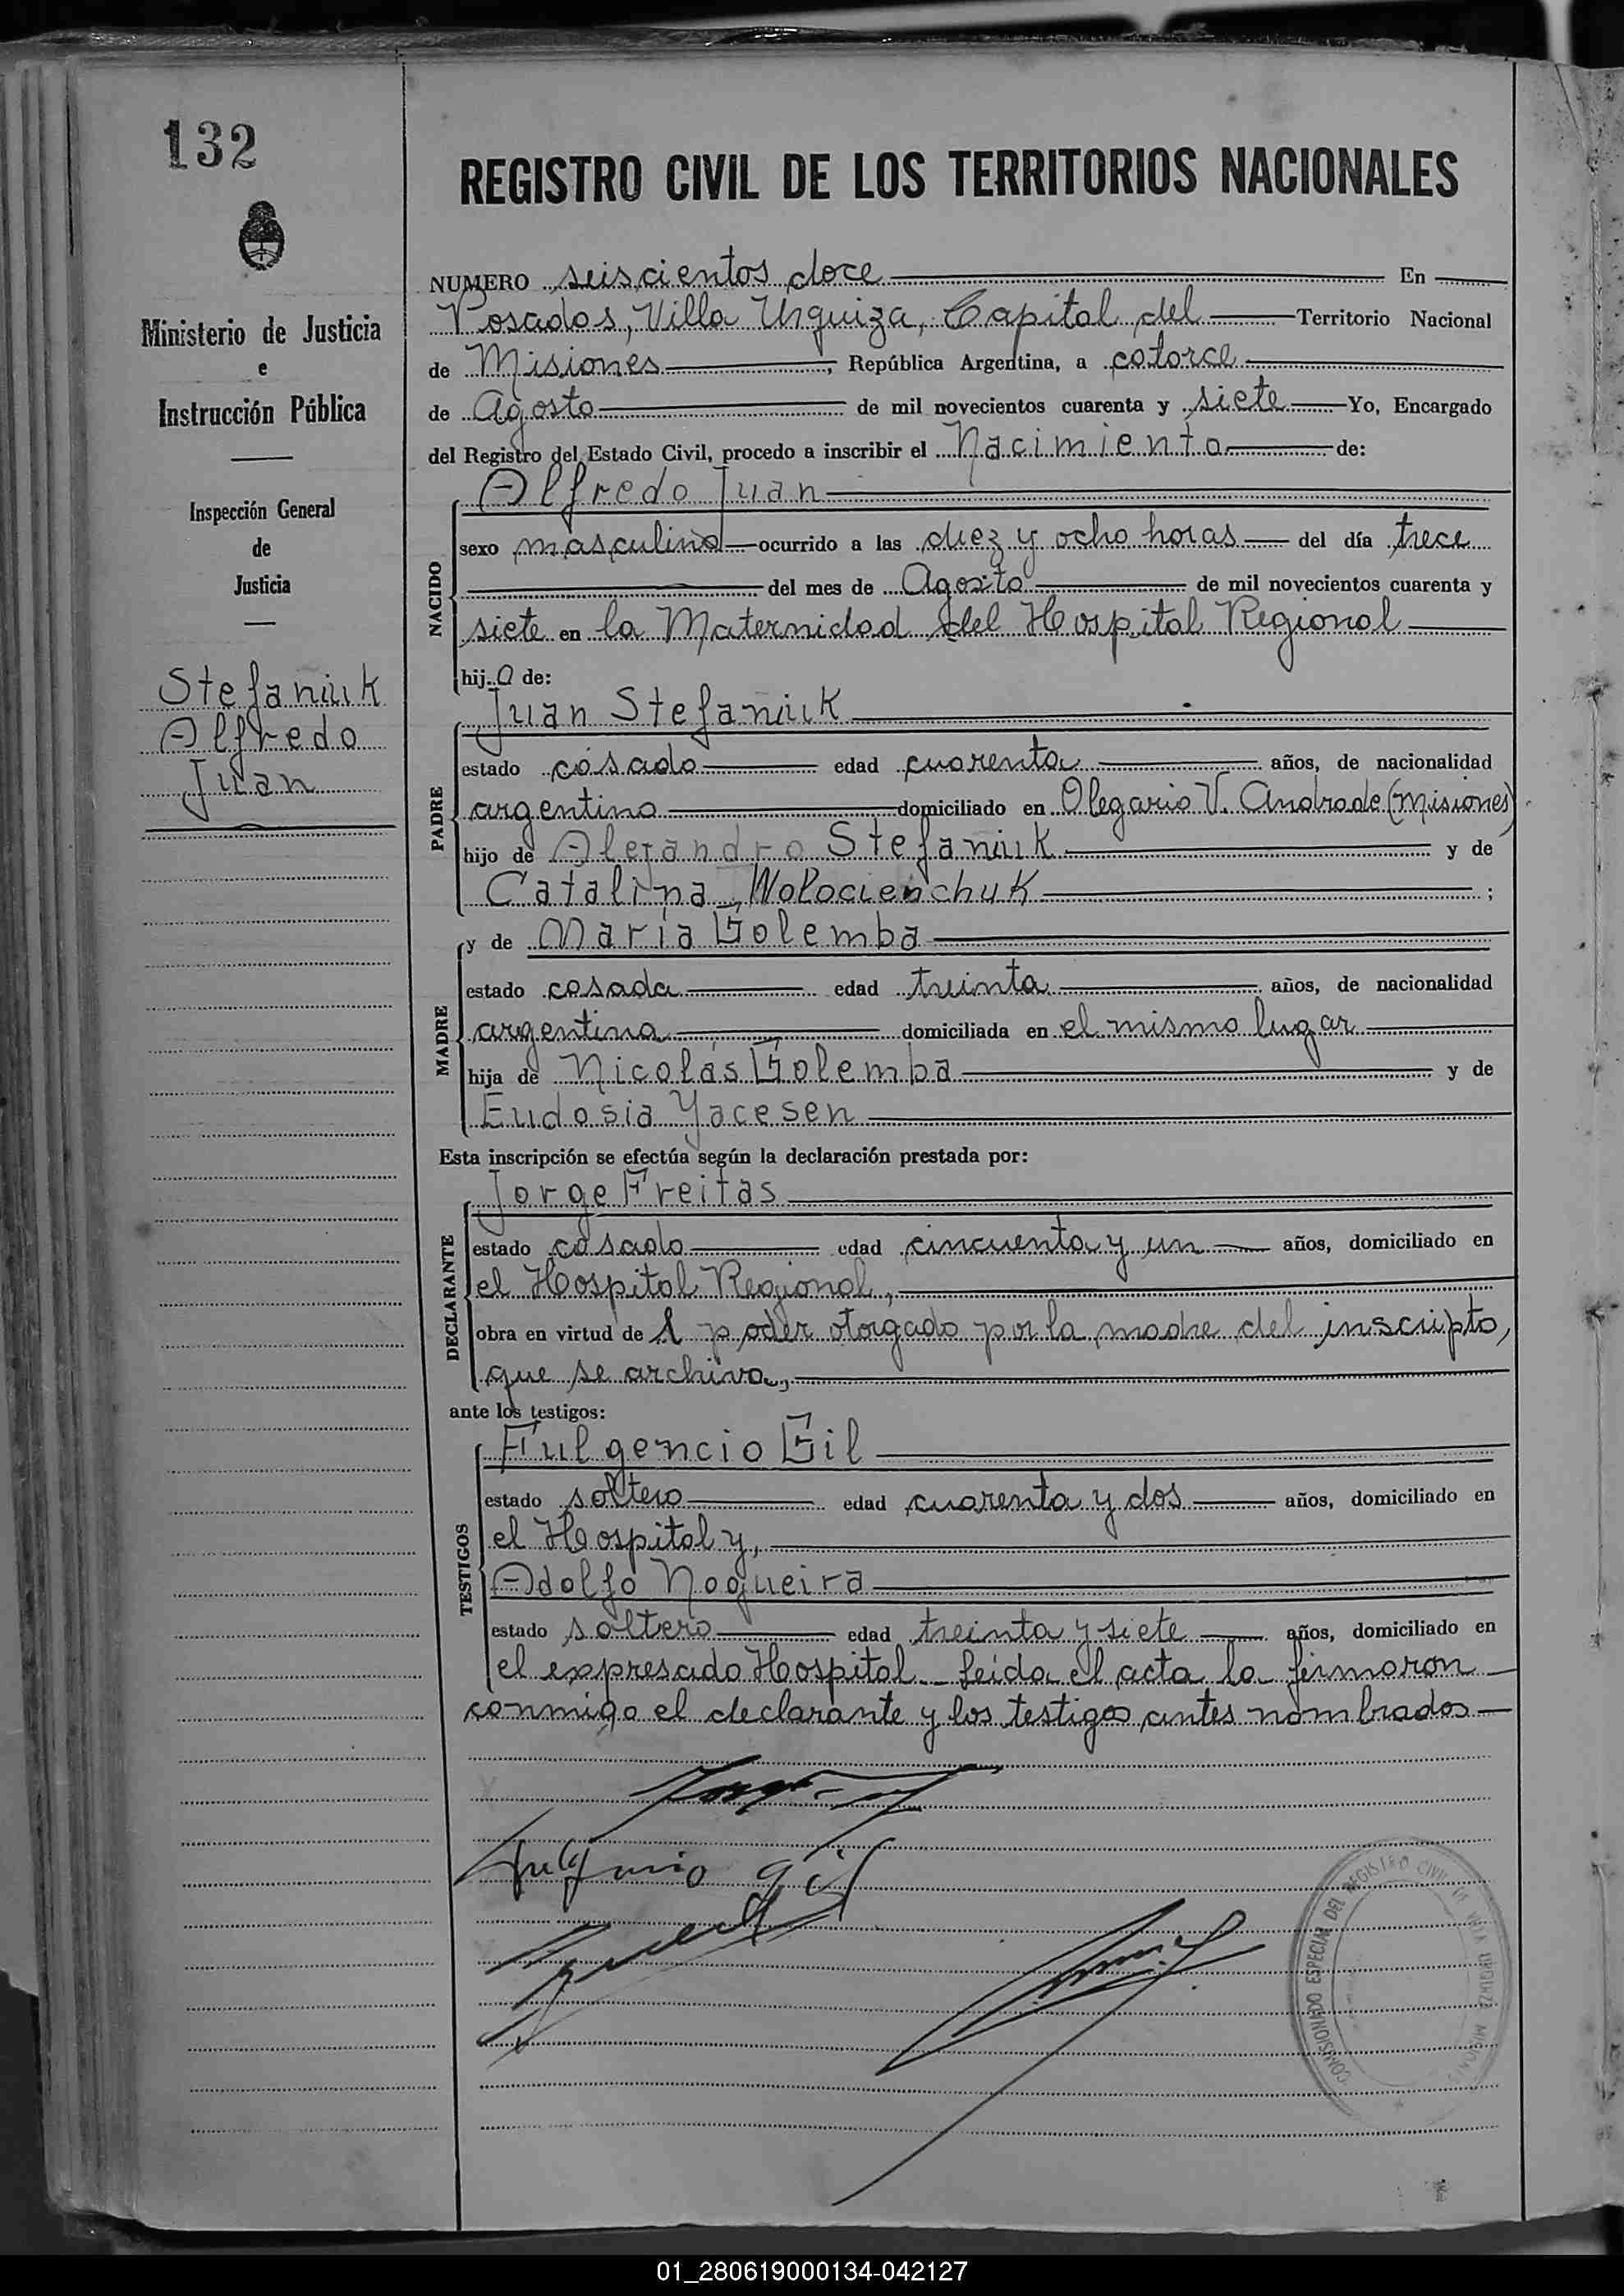 132
Ministerio de Justicia
e
Instrucción Pública
Inspección General
de
Justicia
Stefaniuk
Alfredo
Juan
REGISTRO CIVIL DE LOS TERRITORIOS NACIONALES
NUMERO seiscientos doce En
Posadas, Villa Urquiza, Capital del Territorio Nacional
de Misiones, República Argentina, a catorce
de Agosto de mil novecientos cuarenta y siete Yo, Encargado
del Registro del Estado Civil, procedo a inscribir el Nacimiento de:
NACIDO
Alfredo Juan
sexo masculino ocurrido a las diez y ocho horas del día trece
del mes de Agosto de mil novecientos cuarenta y
siete en la Maternidad del Hospital Regional
hijo de:
PADRE
Juan Stefaniuk
estado casado edad cuarenta años, de nacionalidad
argentina domiciliado en Olegario V. Andrade (Misiones)
hijo de Alejandro Stefaniuk y de
Catalina Wolocienchuk;
MADRE
y de María Golemba
estado casada edad treinta años, de nacionalidad
argentina domiciliada en el mismo lugar
hija de Nicolás Golemba y de
Eudosia Yacesen
Esta inscripción se efectúa según la declaración prestada por:
DECLARANTE
Jorge Freitas
estado casado edad cincuenta y un años, domiciliado en
el Hospital Regional,
obra en virtud de l poder otorgado por la madre del inscripto,
que se archiva,
ante los testigos:
TESTIGOS
Fulgencio Gil
estado soltero edad cuarenta y dos años, domiciliado en
el Hospital y,
Adolfo Nogueira
estado soltero edad treinta y siete años, domiciliado en
el expresado Hospital. Leída el acta la firmaron
conmigo el declarante y los testigos antes nombrados
Fulgencio Gil
COMISIONADO ESPECIAL DEL REGISTRO CIVIL DE VILLA URQUIZA MISIONES
01_280619000134-042127